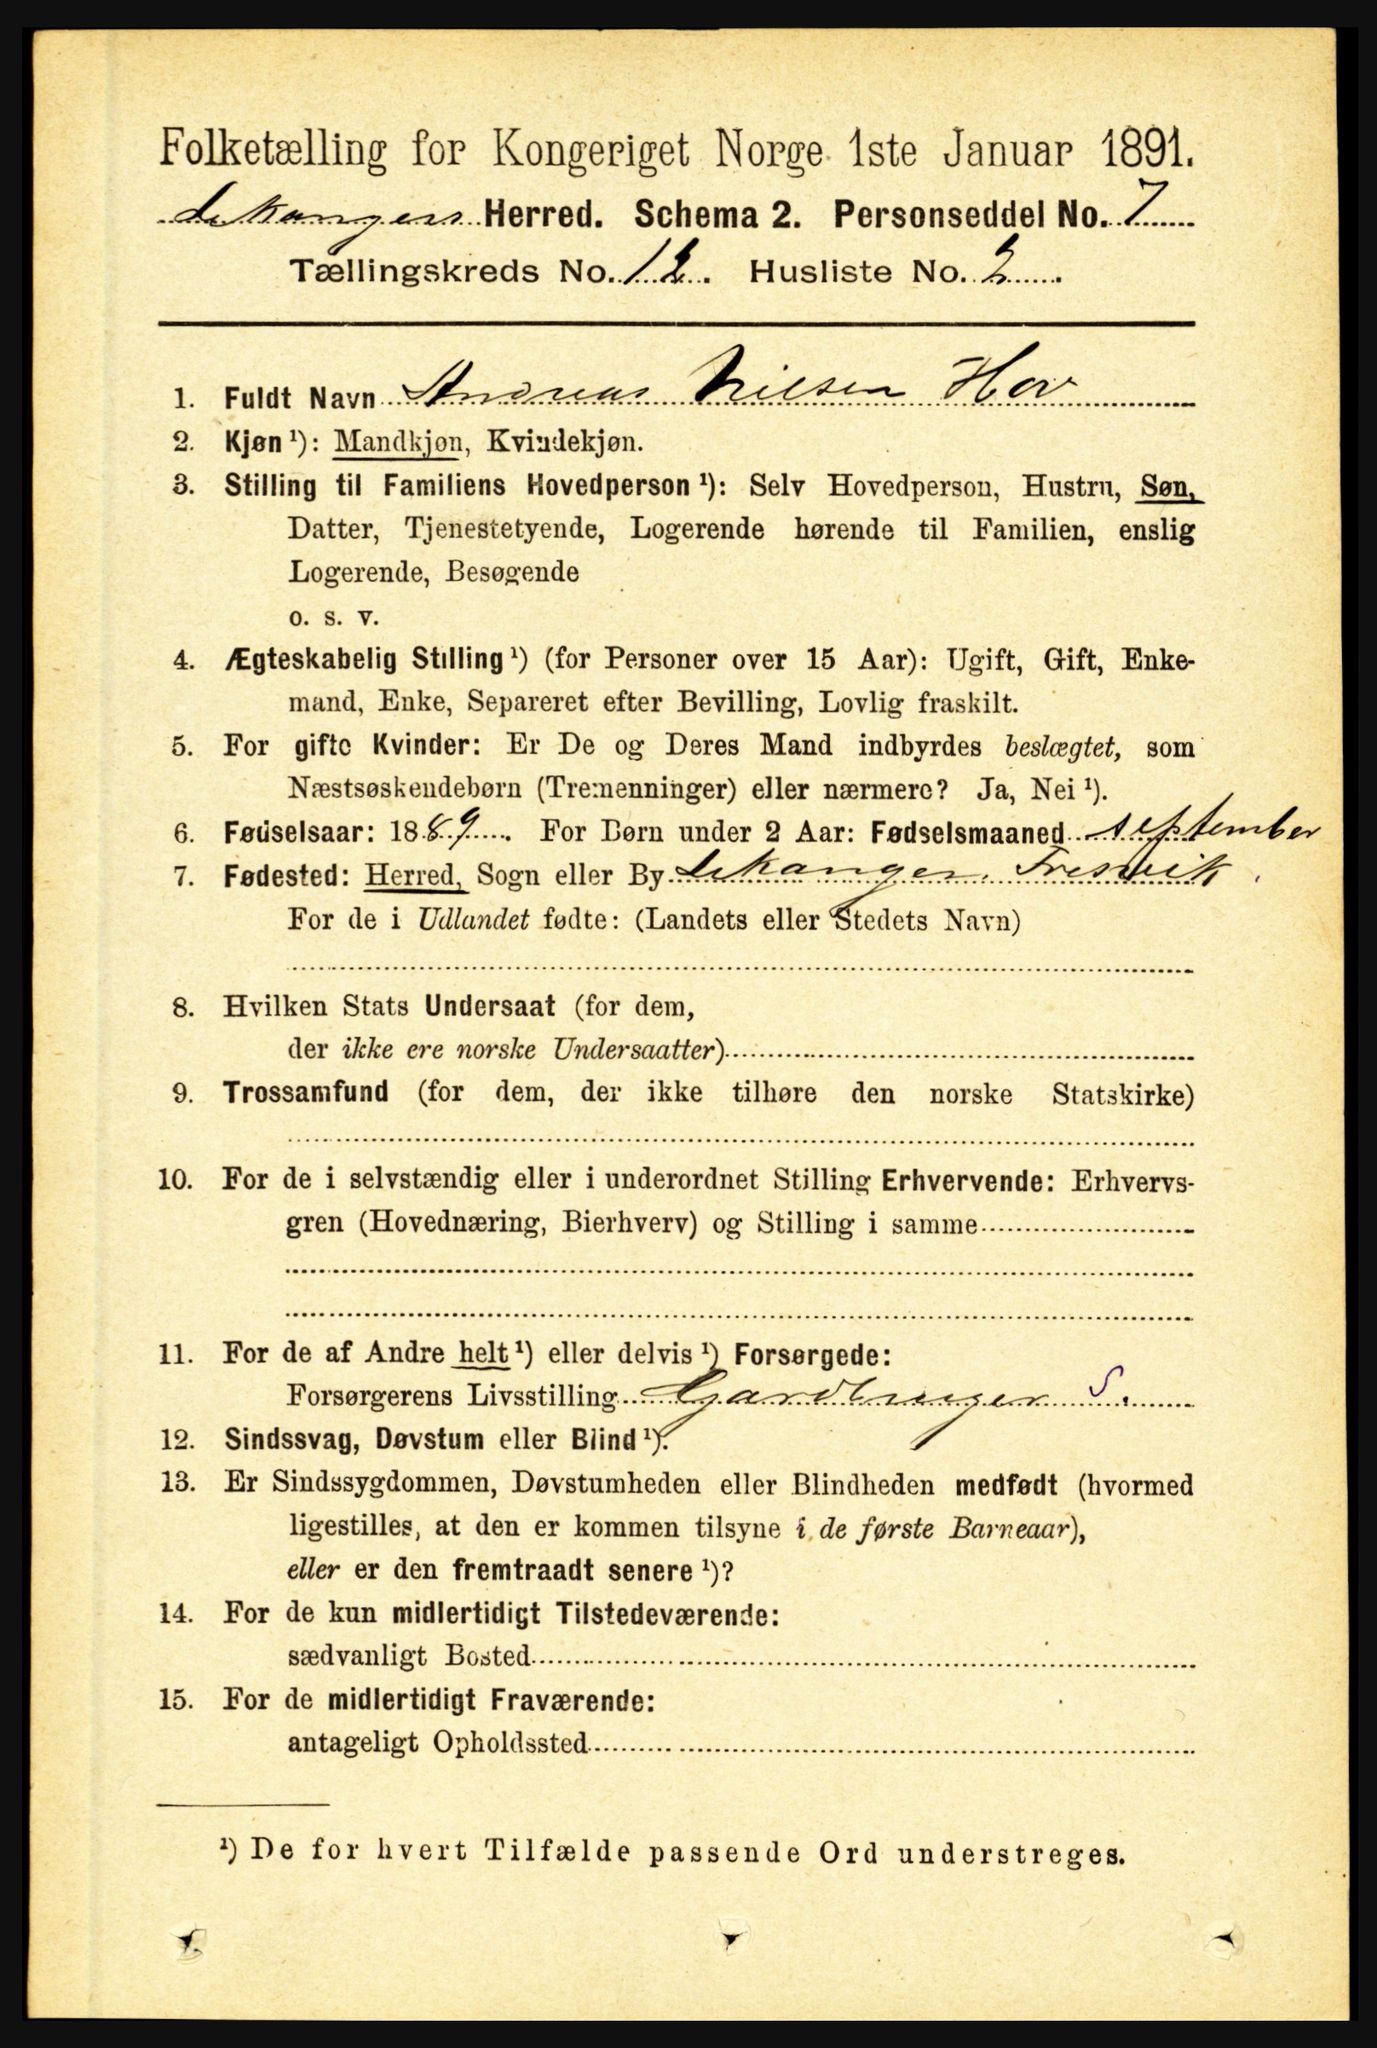 Folketælling for Kongeriget Norge 1ste Januar 1891.
Lekangers Herred. Schema 2. Personseddel No. 7
Tællingskreds No. 12. Husliste No. 2.
1. Fuldt Navn Andreas Nilsen Hov
2. Kjøn ¹): Mandkjøn, Kvindekjøn.
3. Stilling til Familiens Hovedperson ¹): Selv Hovedperson, Hustru, Søn,
Datter, Tjenestetyende, Logerende hørende til Familien, enslig
Logerende, Besøgende
o. s. v.
4. Ægteskabelig Stilling ¹) (for Personer over 15 Aar): Ugift, Gift, Enke-
mand, Enke, Separeret efter Bevilling, Lovlig fraskilt.
5. For gifte Kvinder: Er De og Deres Mand indbyrdes beslægtet, som
Næstsøskendebørn (Tremenninger) eller nærmere? Ja, Nei ¹).
6. Fødselsaar: 1889. For Børn under 2 Aar: Fødselsmaaned september
7. Fødested: Herred, Sogn eller By Lekanger. Fresvik
For de i Udlandet fødte: (Landets eller Stedets Navn)
8. Hvilken Stats Undersaat (for dem,
der ikke ere norske Undersaatter)
9. Trossamfund (for dem, der ikke tilhøre den norske Statskirke)
10. For de i selvstændig eller i underordnet Stilling Erhvervende: Erhvervs-
gren (Hovednæring, Bierhverv) og Stilling i samme
11. For de af Andre helt ¹) eller delvis ¹) Forsørgede:
Forsørgerens Livsstilling Gardbruger S.
12. Sindssvag, Døvstum eller Blind ¹).
13. Er Sindssygdommen, Døvstumheden eller Blindheden medfødt (hvormed
ligestilles, at den er kommen tilsyne i de første Barneaar),
eller er den fremtraadt senere ¹)?
14. For de kun midlertidigt Tilstedeværende:
sædvanligt Bosted
15. For de midlertidigt Fraværende:
antageligt Opholdssted
¹) De for hvert Tilfælde passende Ord understreges.